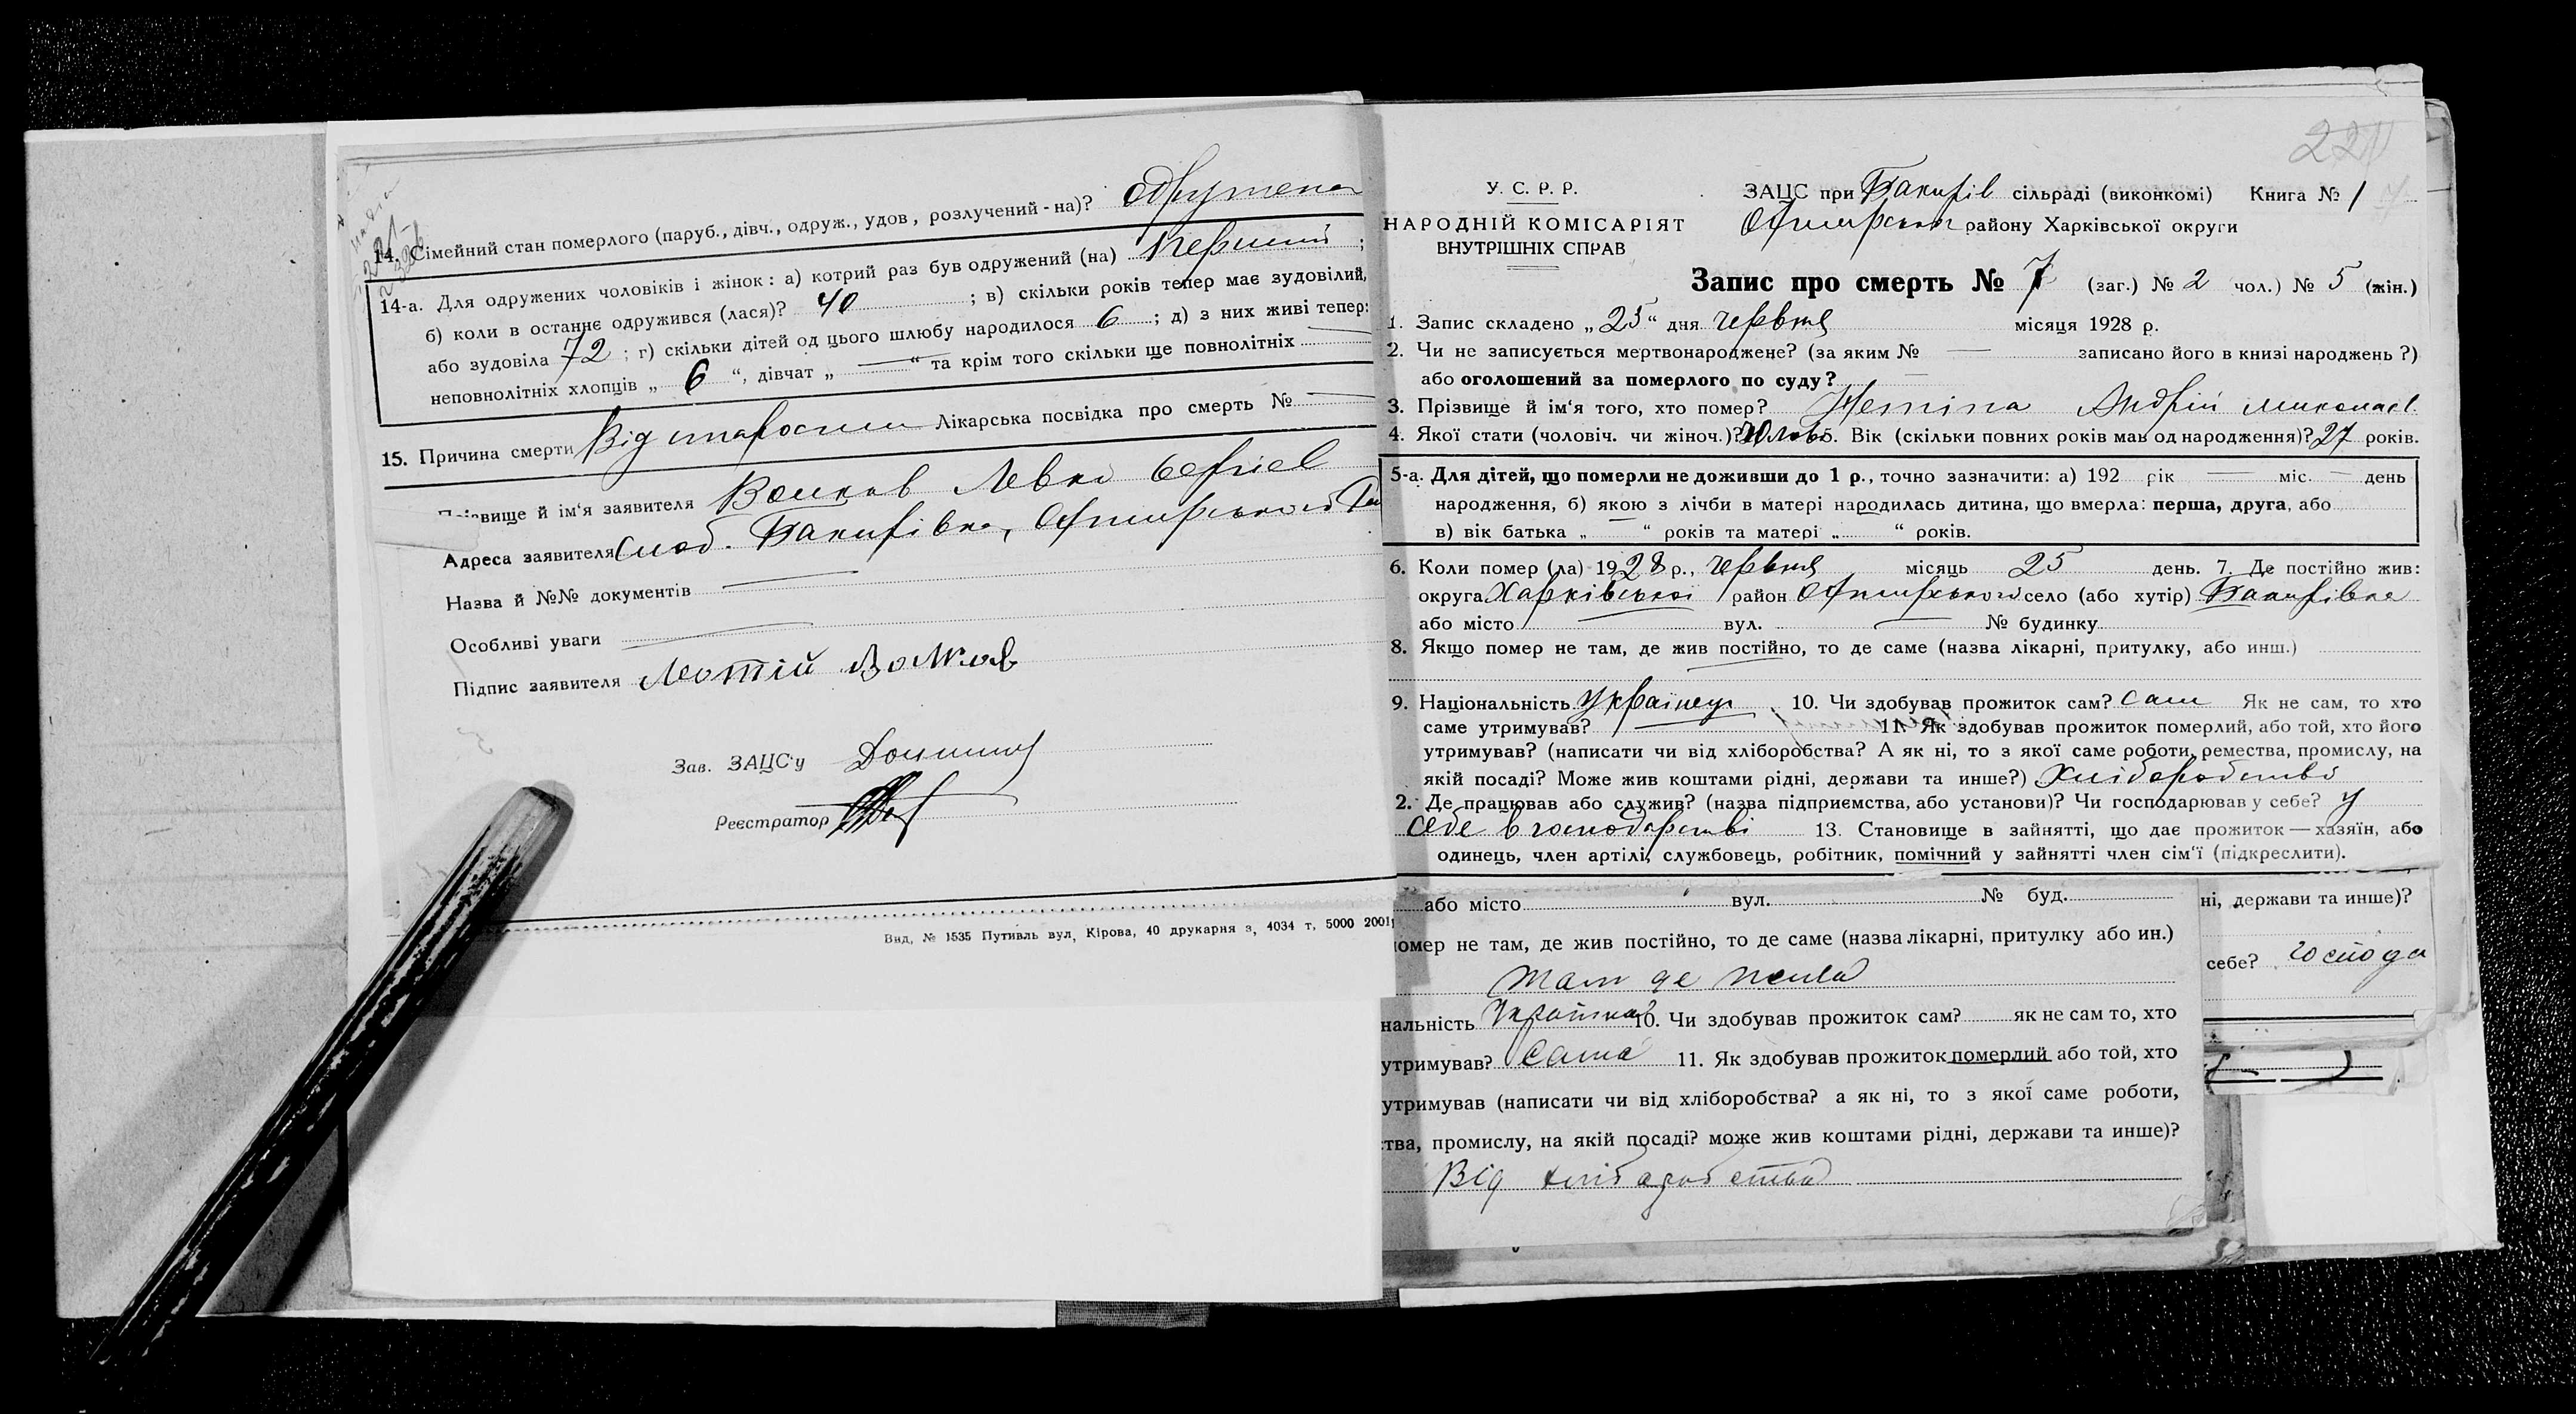 14. Сімейний стан померлого (паруб., дівч., одруж., удов, розлучений-на)? Одружена
14-а. Для одружених чоловіків і жінок: а) котрий раз був одружений (на) Перший ;
б) коли в останнє одружився (лася)? 40 ; в) скільки років тепер має зудовілий,
або зудовіла 72 ; г) скільки дітей од цього шлюбу народилося 6 ; д) з них живі тепер:
неповнолітніх хлопців „ 6 “, дівчат „ — “ та крім того скільки ще повнолітніх —
15. Причина смерти Від старости Лікарська посвідка про смерть № —
вище й ім‘я заявителя Волков Левко
Адреса заявителя Слоб. Бакирівка, Охтирського
Назва й №№ документів —
Особливі уваги —
Підпис заявителя Волков
Зав. ЗАЦС‘у
Реєстратор
Вид. № 1535 Путивль вул. Кірова, 40 друкарня з. 4034 т. 5000 2001
224
У. С. Р. Р.
НАРОДНІЙ КОМІСАРІЯТ
ВНУТРІШНІХ СПРАВ
ЗАЦС при Бакирів сільраді (виконкомі) Книга № 1
Охтирськог району Харківської округи
Запис про смерть № 7 (заг.) № 2 чол.) № 5 (жін.)
1. Запис складено „ 25 “ дня червня місяця 1928 р.
2. Чи не записується мертвонароджене? (за яким № — записано його в книзі народжень ?)
або оголошений за померлого по суду? —
3. Прізвище й ім‘я того, хто помер? Андрій Миколаєв.
4. Якої стати (чоловіч. чи жіноч.)? Чолов 5. Вік (скільки повних років мав од народження)? 27 років.
5-а. Для дітей, що померли не доживши до 1 р., точно зазначити: а) 192 рік — міс. — день
народження, б) якою з лічби в матері народилась дитина, що вмерла: перша, друга, або
в) вік батька „ — “ років та матері „ “ років.
6. Коли помер (ла) 1928 р., червня місяць 25 день. 7. Де постійно жив:
округа Харківської район Охтирського село (або хутір) Бакирівка
або місто — вул. — № будинку
8. Якщо помер не там, де жив постійно, то де саме (назва лікарні, притулку, або инш.)
9. Національність Українець 10. Чи здобував прожиток сам? Сам Як не сам, то хто
саме утримував? — 11. Як здобував прожиток померлий, або той, хто його
утримував? (написати чи від хліборобства? А як ні, то з якої саме роботи, ремества, промислу, на
якій посаді? Може жив коштами рідні, держави та инше?) Хліборобство
2. Де працював або служив? (назва підприємства, або установи)? Чи господарював у себе? У
себе в господарстві 13. Становище в зайнятті, що дає прожиток — хазяїн, або
одинець, член артілі, службовець, робітник, помічний у зайнятті член сім‘ї (підкреслити).
або місто вул. № буд.
омер не там, де жив постійно, то де саме (назва лікарні, притулку або ин.)
там де жила
нальність Українка 10. Чи здобував прожиток сам? як не сам то, хто
утримував? сама 11. Як здобував прожиток померлий або той, хто
утримував (написати чи від хліборобства? а як ні, то з якої саме роботи,
тва, промислу, на якій посаді? може жив коштами рідні, держави та инше)?
Від хліборобства
ні, держави та инше)?
себе? господа